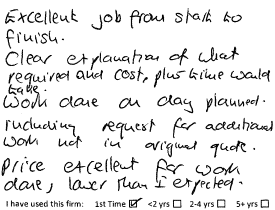 Excellent job from start to
finish.
Clear explanation of what
required and cost, plus time would
take.
Work done on day planned.
including request for additional
work not in original quote.
Price excellent for work
done, lower than I expected.
I have used this firm: 1st Time ☑ <2 yrs ☐ 2-4 yrs ☐ 5+ yrs ☐